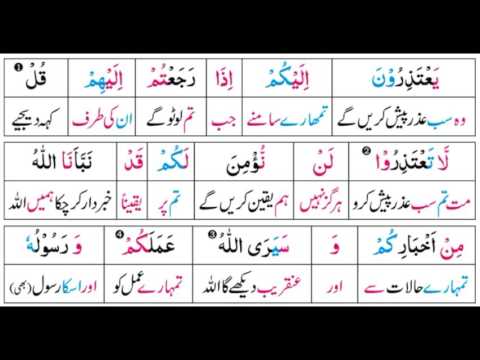 يَعْتَذِرُوْنَ اِلَيْكُمْ اِذَا رَجَعْتُمْ اِلَيْهِمْ قُلْ ①
وہ سب عذر پیش کریں گے تمہارے سامنے جب تم لوٹو گے ان کی طرف کہہ دیجیے
لَّا تَعْتَذِرُوْا ② لَنْ نُّؤْمِنَ لَكُمْ قَدْ نَبَّاَنَا اللّٰهُ
مت تم سب عذر پیش کرو ہرگز نہیں ہم یقین کریں گے تم پر یقیناً خبردار کر چکا ہمیں اللہ
مِنْ اَخْبَارِكُمْ وَ سَيَرَى اللّٰهُ ③ عَمَلَكُمْ ④ وَ رَسُوْلُهٗ
تمہارے حالات سے اور عنقریب دیکھے گا اللہ تمہارے عمل کو اور اسکا رسول (بھی)